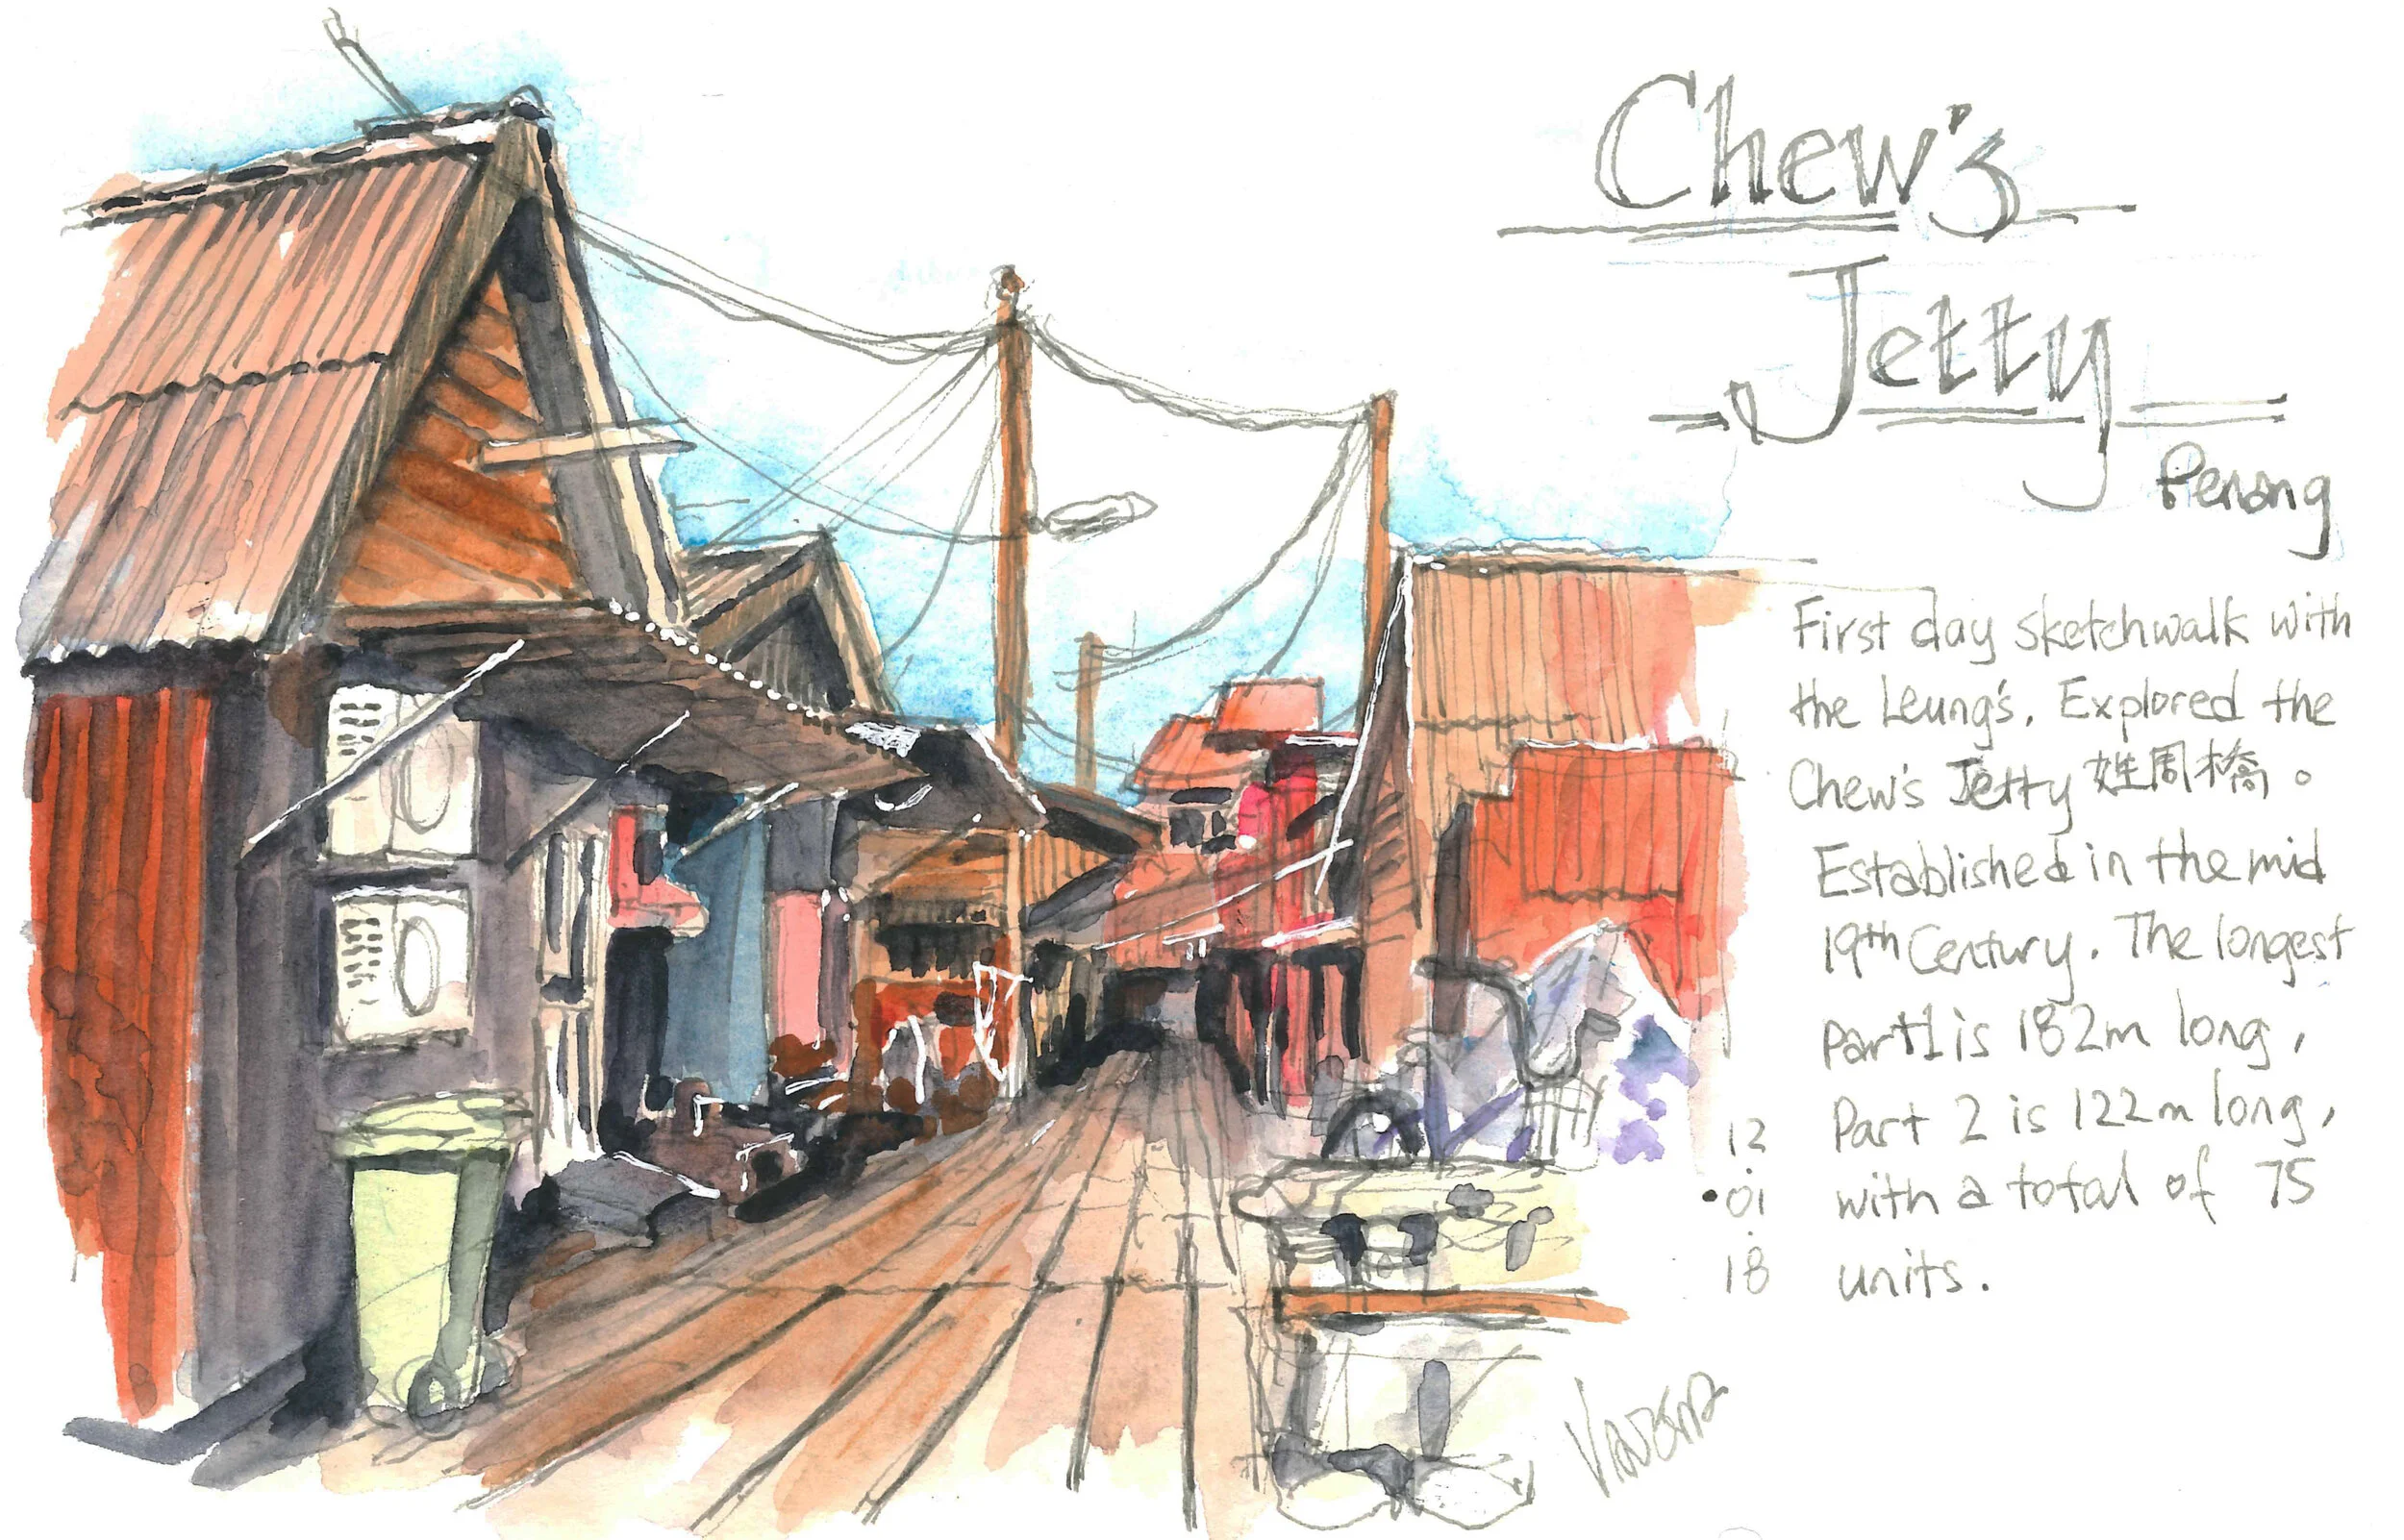 Chew's
Jetty
Penang
First day sketchwalk with
the Leung's. Explored the
Chew's Jetty 姓周橋。
Established in the mid
19th Century. The longest
part 1 is 182m long,
Part 2 is 122m long,
with a total of 75
units.
12
.01
.
18